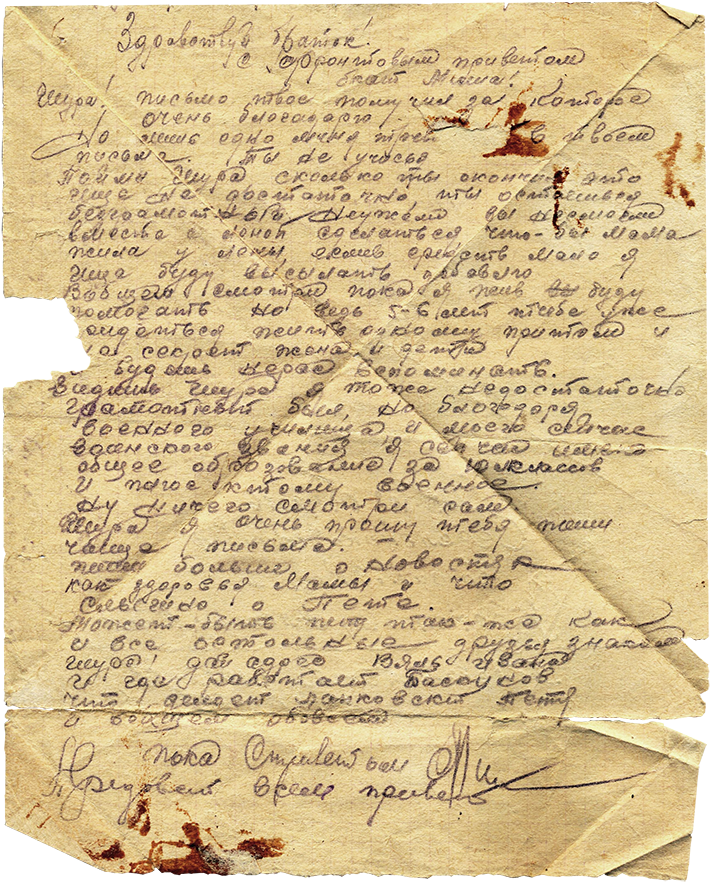 Здравствуй браток!
с фронтовым приветом
брат Миша!
Шура! письмо твое получил за которое
очень благодарю.
Но лишь одно меня в твоем
письме. Ты не учисься
Пойми Шура сколько ты окончил это
еще не достаточно, ты остаешься
безграмотный Неужели вы не
вместе с сделаться что-бы Мама
жила у если средств мало я
еще буду высылать
Вобщем смотри пока я жив буду
помогать но ведь 5-6 лет и тебе уже
придеться жить одному притом и
не секрет жена и дети
будиш нераз вспоминать.
Видишь Шура я тоже недостаточно
грамотный был, но благодоря
военного училища и моего сейчас
воинского звания я сейчас имею
общее образование за 10 классов
и плюс ктому военное.
ну ничего смотри сам
Шура я очень прошу тебя пиши
чаще письма.
пиши больше о новостях
как здоровья Мамы и что
слышно о Пете.
Может-быть так-же как
и все остольные друзья
Шура! дай адрес Ивана
и где работает
что делает Петя
и вообщем обовсем
пока С приветом
Передовай всем привет